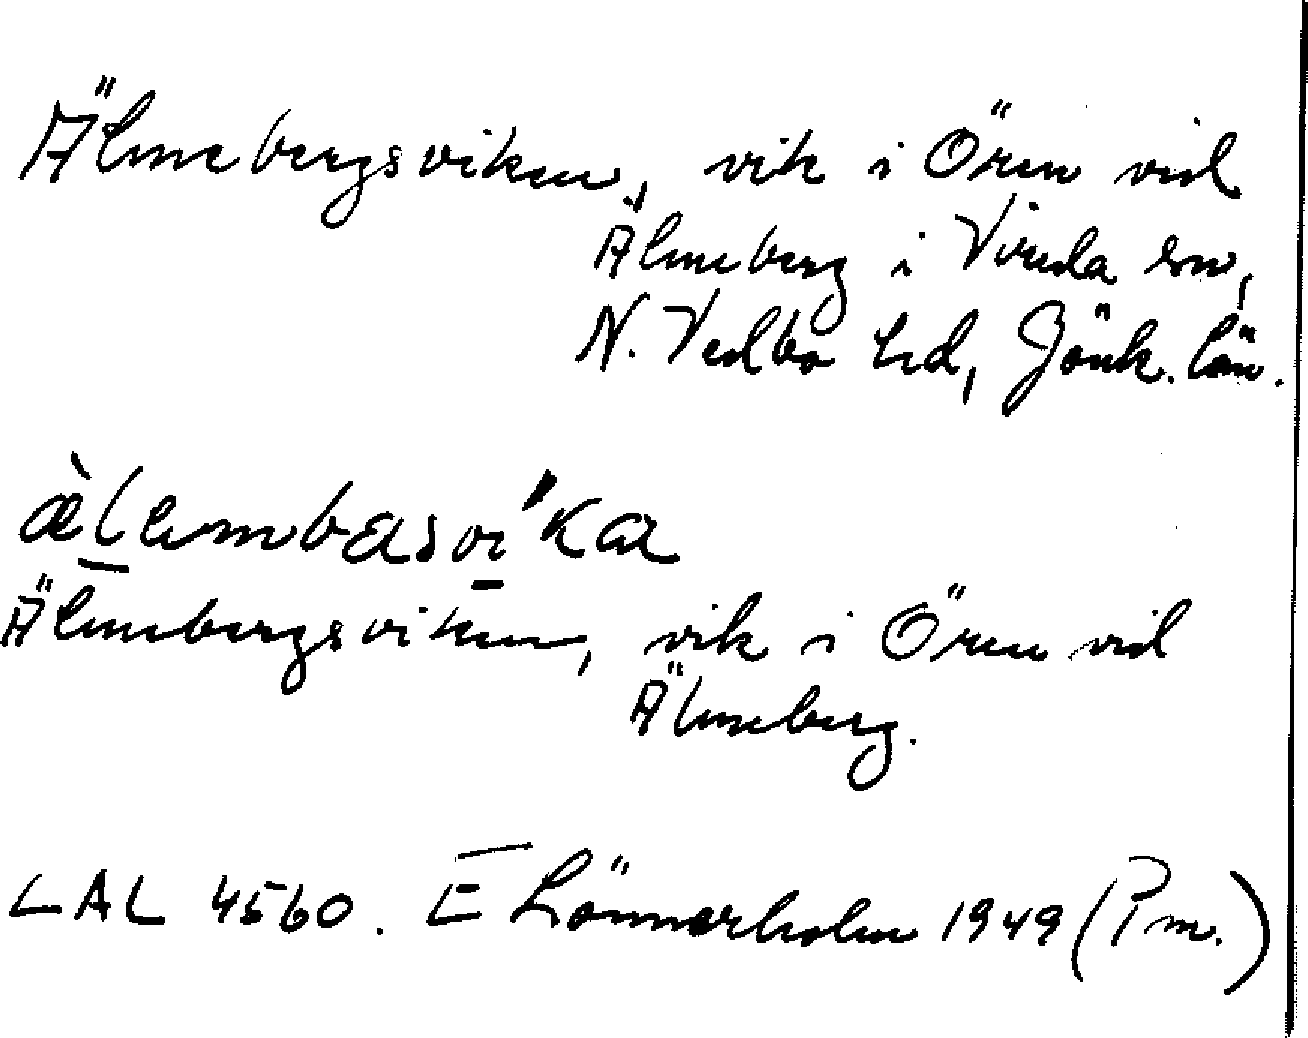 Älmebergsviken, vik i Ören vid
Älmeberg i Vireda sn,
N. Vedbo hd, Jönk. län.
æ̀lembasvi"ka
Älmebergsviken, vik i Ören vid
Älmeberg.
LAL 4560. E Lönnerholm 1949 (Pm.)